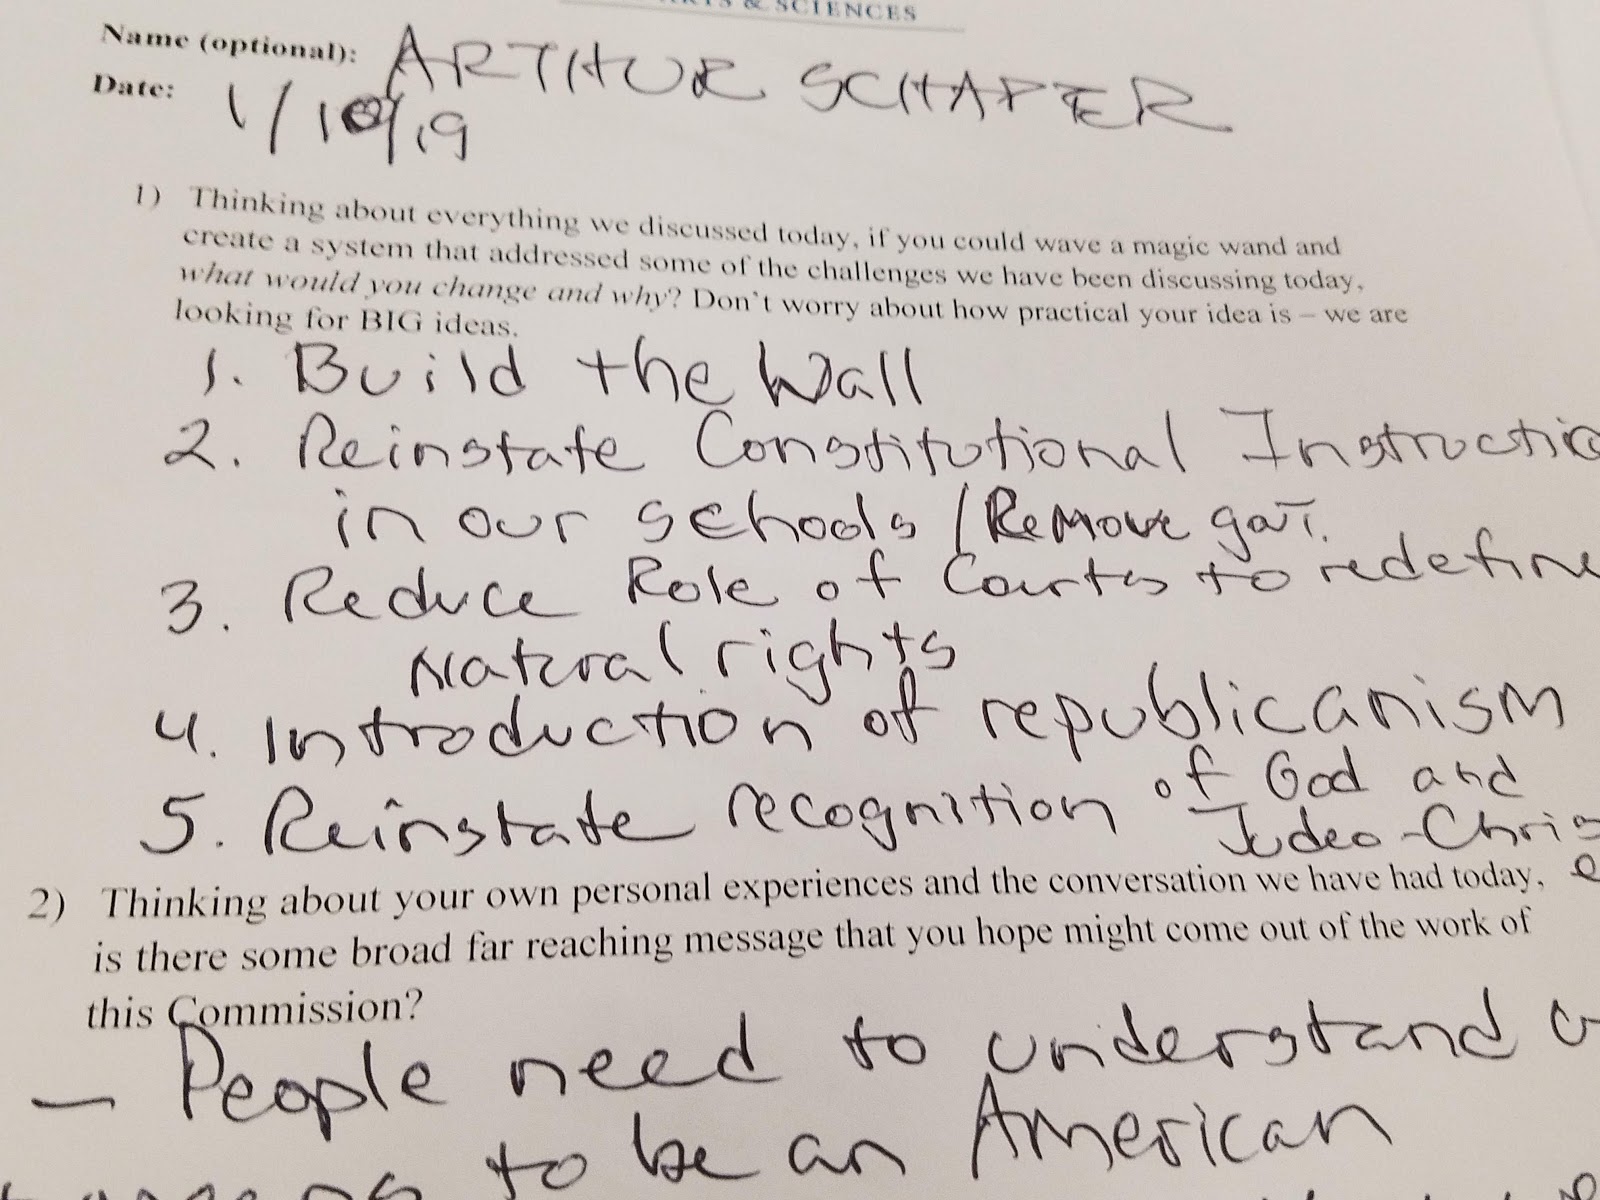 ARTS & SCIENCES
Name (optional): ARTHUR SCHAPER
Date: 1/10/19
1) Thinking about everything we discussed today, if you could wave a magic wand and
create a system that addressed some of the challenges we have been discussing today,
what would you change and why? Don't worry about how practical your idea is – we are
looking for BIG ideas.
1. Build the Wall
2. Reinstate Constitutional Instructio
in our schools / Remove gov't.
3. Reduce Role of Courts to redefine
Natural rights
4. Introduction of republicanism
5. Reinstate recognition of God and
Judeo-Chris
2) Thinking about your own personal experiences and the conversation we have had today,
is there some broad far reaching message that you hope might come out of the work of
this Commission?
– People need to understand
to be an American